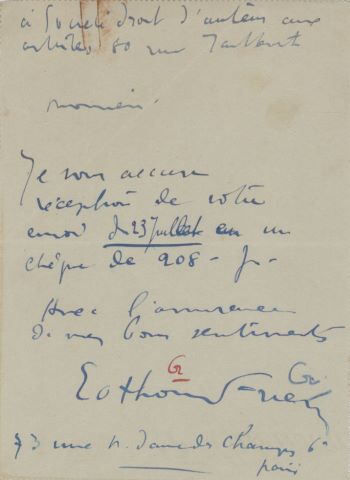 à Société droit d'auteur aux
artistes, 80 rue Taitbout
monsieur
Je vous accuse
réception de votre
envoi du 23 Juillet en un
chèque de 908 - fr -
Avec l'assurance
de mes bons sentiments
Gr
Othon Friesz
Gr
73 rue N. Dame des Champs 6e
paris